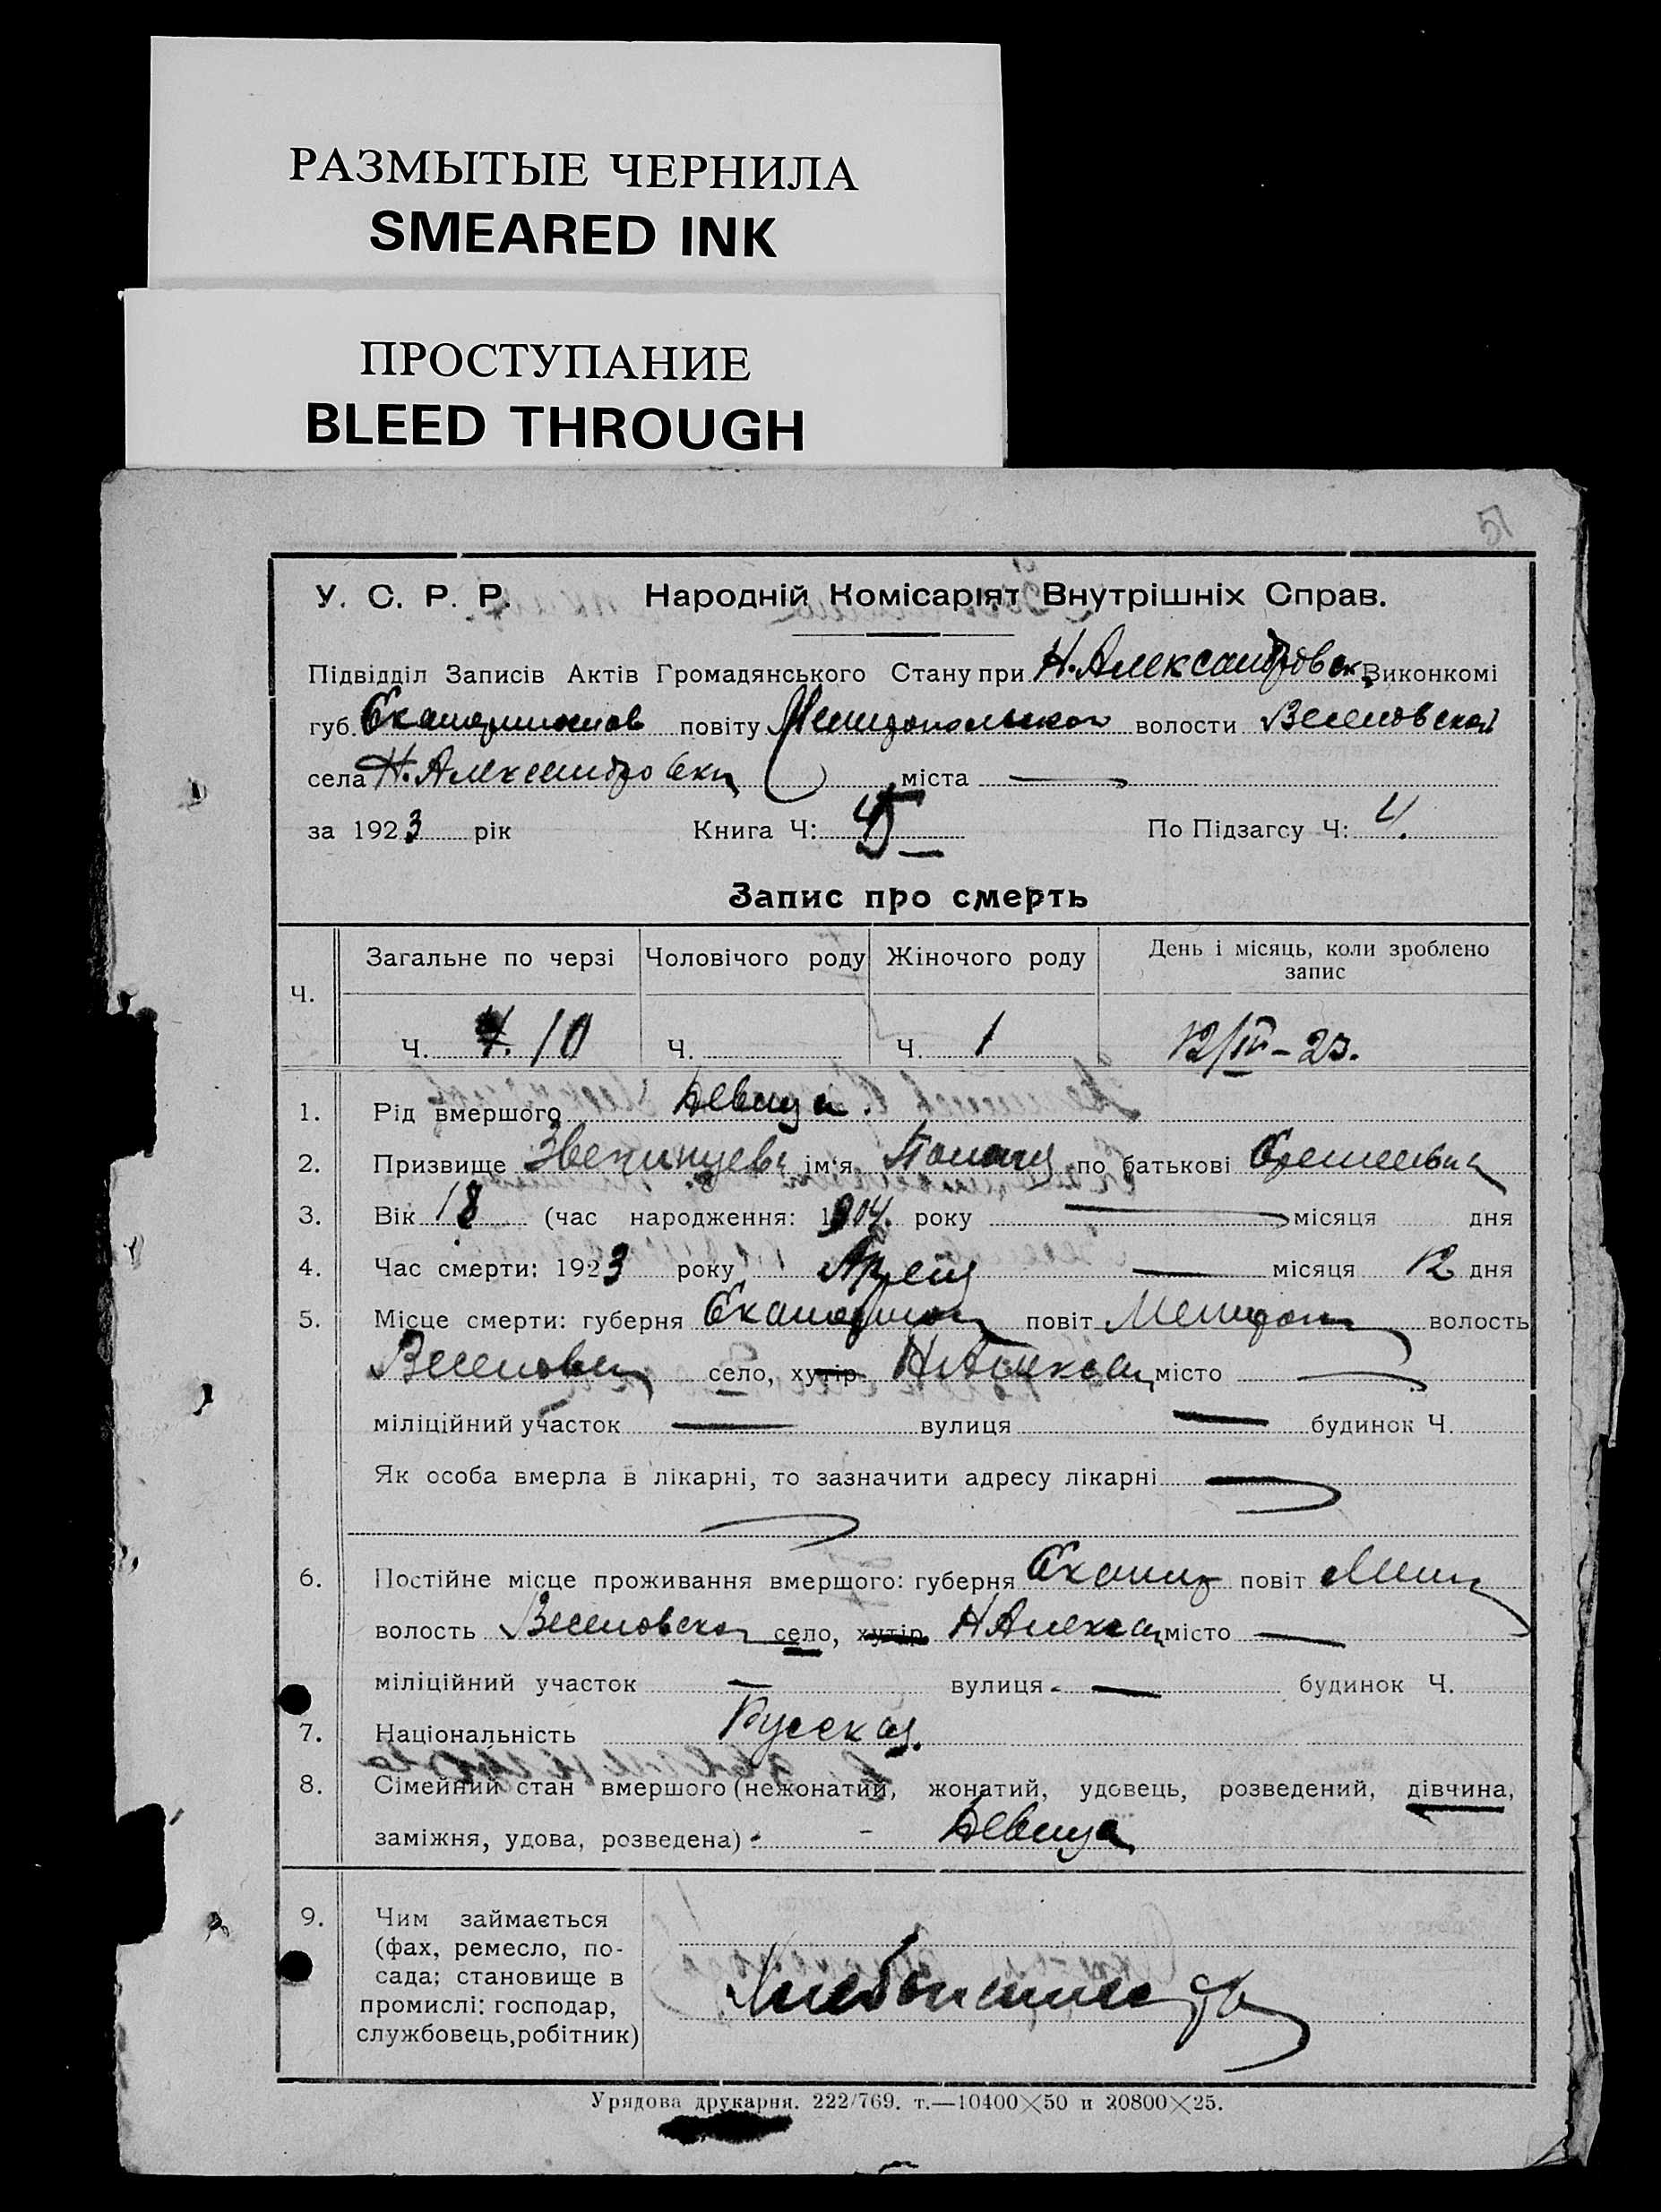 РАЗМЫТЫЕ ЧЕРНИЛА
SMEARED INK
ПРОСТУПАНИЕ
BLEED THROUGH
51
У. С. Р. Р. Народній Комісаріят Внутрішніх Справ.
Підвідділ Записів Актів Громадянського Стану при Н. Александровск. Виконкомі
губ. повіту волости Веселовской
села Н. Александровки міста
за 1923 рік Книга Ч: По Підзагсу Ч: 4.
Запис про смерть
Ч. Загальне по черзі Чоловічого роду Жіночого роду День і місяць, коли зроблено
запис
Ч. 10 Ч. Ч. 1 12/IV – 23.
1. Рід вмершого Девица.
2. Призвище ім'я по батькові
3. Вік 18 (час народження: 1904. року місяця дня
4. Час смерти: 1923 року місяця 12 дня
5. Місце смерти: губерня повіт волость
село, хутір Н Алексан місто
міліційний участок вулиця будинок Ч.
Як особа вмерла в лікарні, то зазначити адресу лікарні
6. Постійне місце проживання вмершого: губерня повіт
волость Веселовской село, хутір Н Алексан місто
міліційний участок вулиця будинок Ч.
7. Національність Русская.
8. Сімейний стан вмершого (нежонатий, жонатий, удовець, розведений, дівчина,
заміжня, удова, розведена) Девица
9. Чим займається
(фах, ремесло, по-
сада; становище в
промислі: господар,
службовець, робітник)
Урядова друкарня. 222/769. т.—10400×50 и 20800×25.